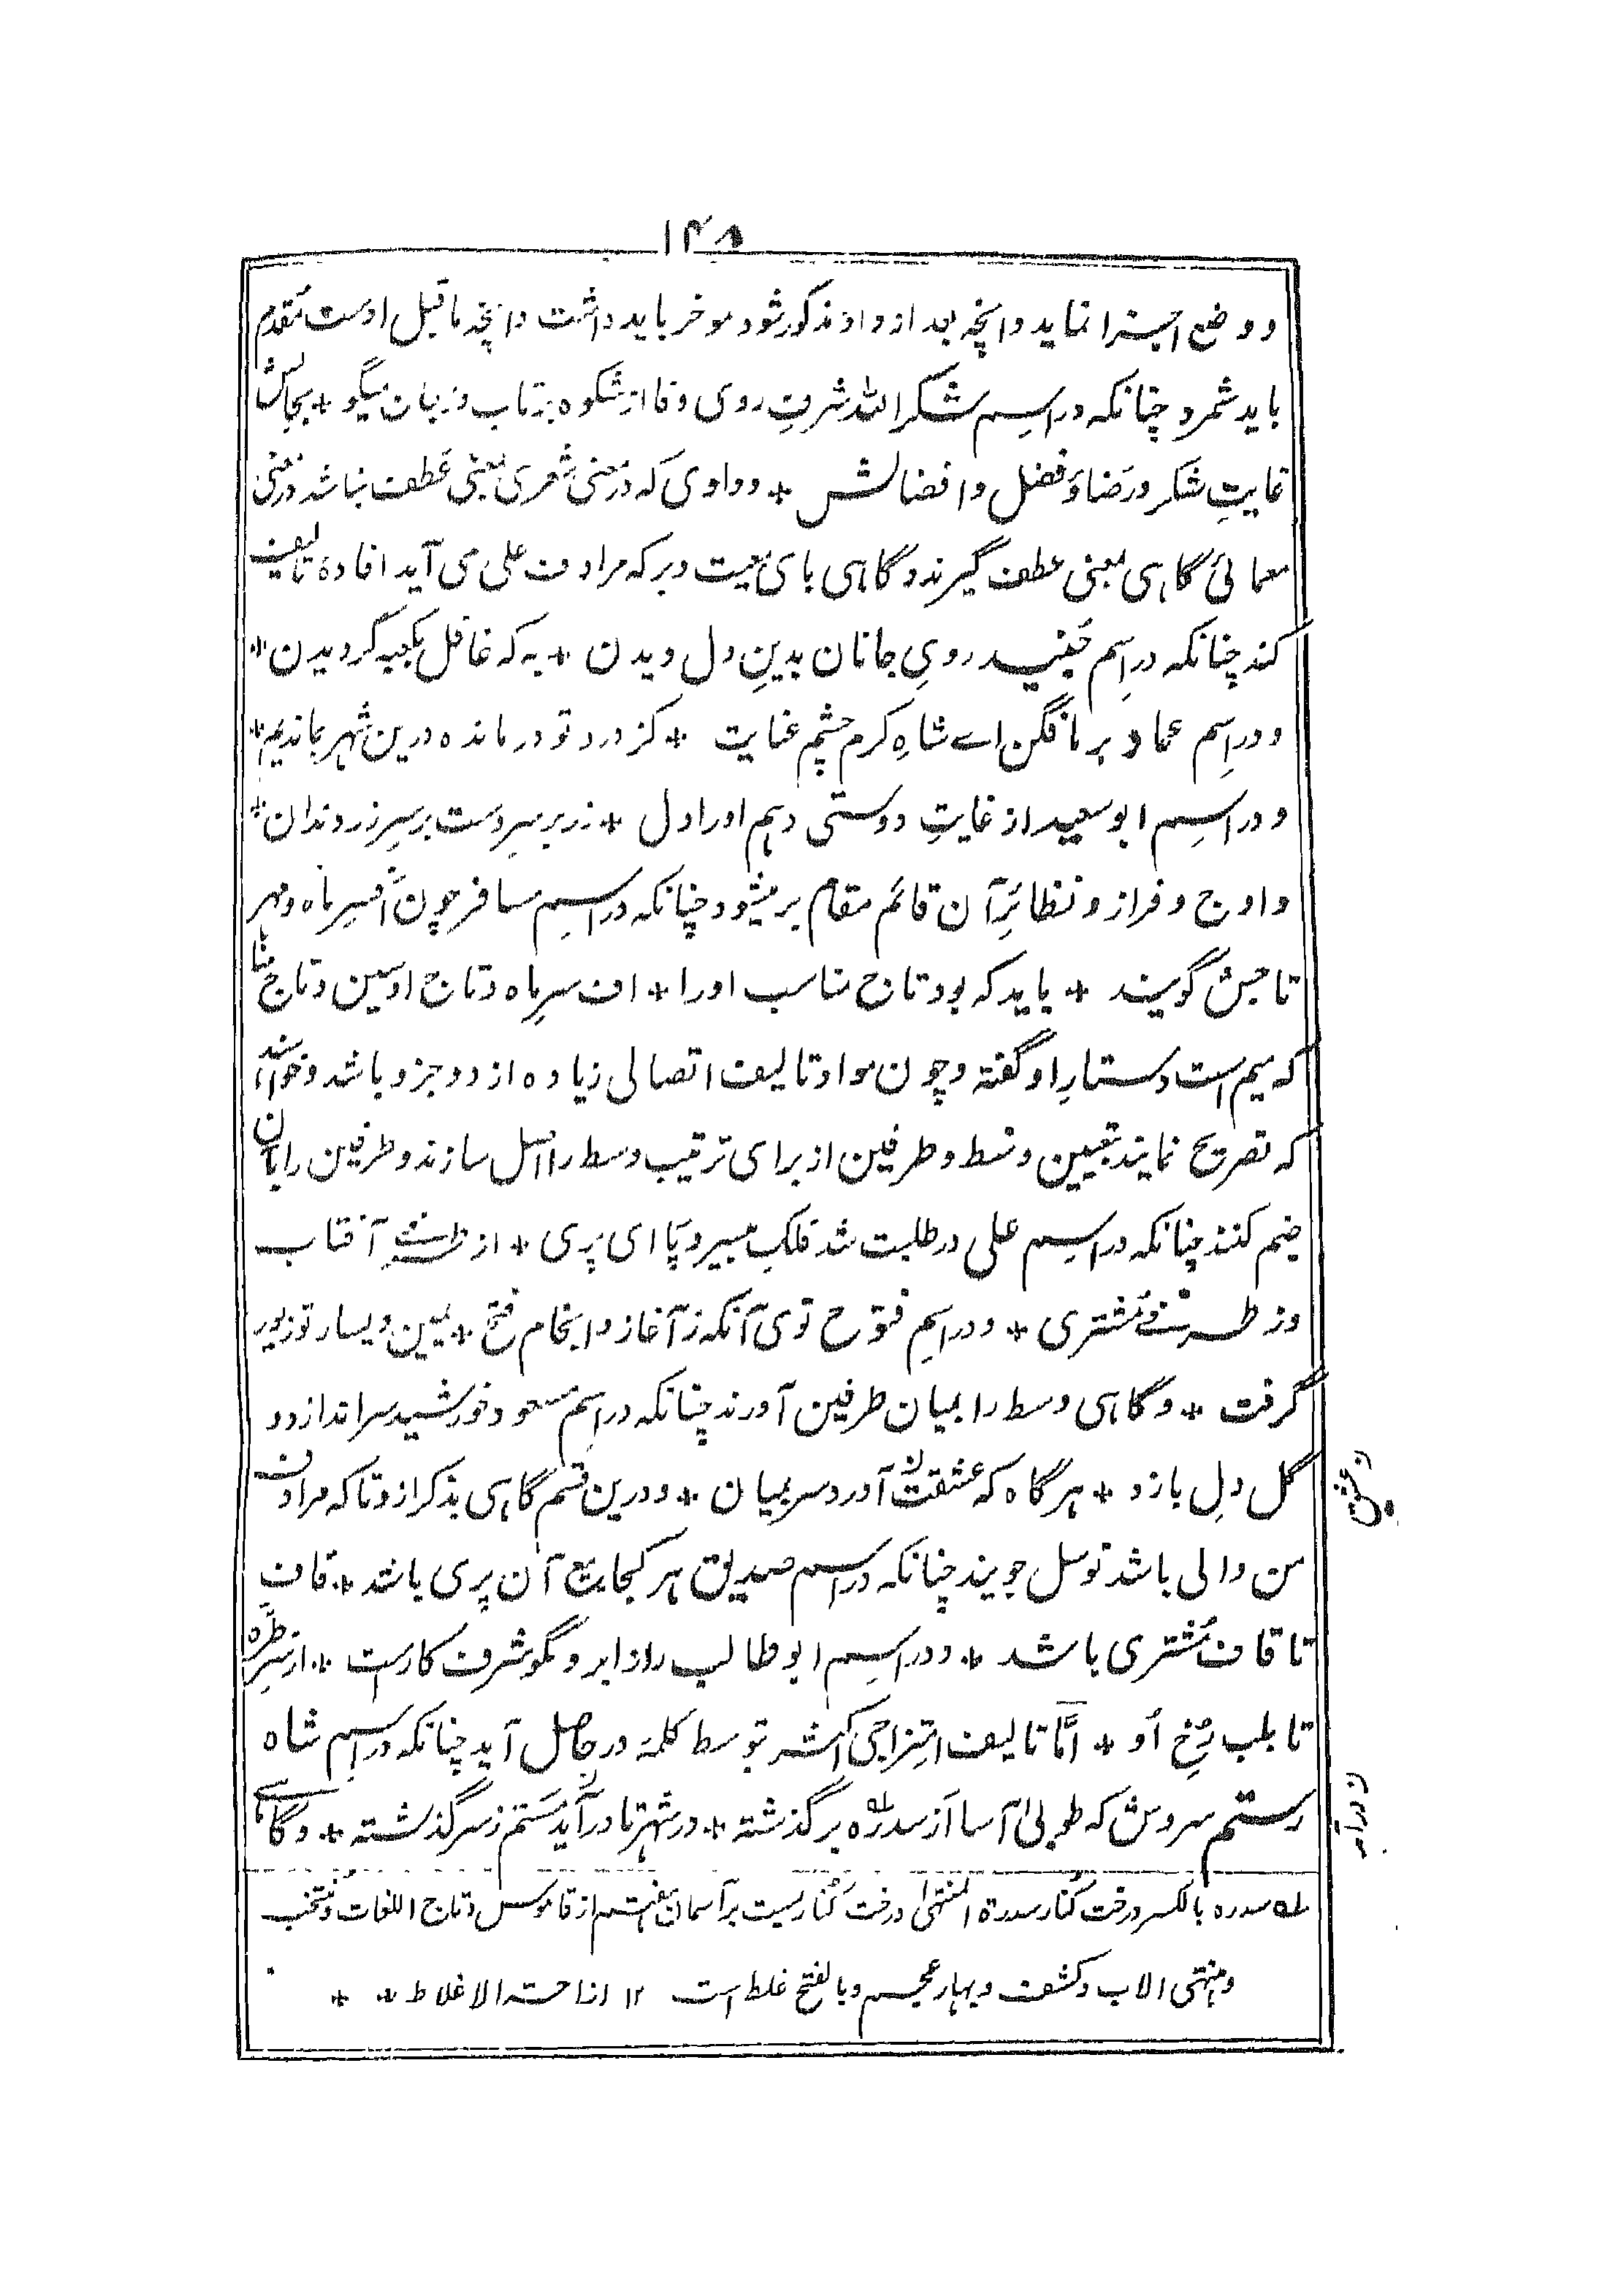 ۱۴۸
و وضع اجزا نماید و انچه بعد از واو مذکور شود موخر باید داشت و انچه ما قبل اوست مقدم
باید شمرد چنانکه در اسم شکر الله شرف روی وفا از شکوه برتاب و زبان میگو * بجالش
غایتِ شکر و رضا و فضل و افضالش * و واوی که در معنی شعری بمعنی عطف نباشد در معنی
معمائی گاهی بمعنی عطف گیرند و گاهی بای معیت و بر که مرادف علی می آید افادهٔ تالیف
کند چنانکه در اسم جنید روی جانان بدین دل دیدن * به که غافل بکعبه گردیدن *
و در اسم عماد بر ما فکن اے شاه کرم چشم عنایت * کز درد تو درمانده درین شهر بماندیم *
و در اسم ابو سعید از غایت دوستی دهم او را دل * زر بر سر دست بر سر زر دندان *
و اوج و فراز و نظائر آن قائم مقام بر میشود چنانکه در اسم مسافر چون افسر ماه و مهر
تاجش گویند * باید که بود تاج مناسب او را * اف سر ماه و تاج او سین و تاج
که میم است دستار او گفته و چون مواد تالیف اتصالی زیاده از دو جزو باشد و خواهند
که تصریح نمایند بتعیین وسط و طرفین از برای ترتیب وسط را اصل سازند و طرفین را بان
ضم کنند چنانکه در اسم علی در طلبت شد فلک بیسر و پا ای پری * از طرفش آفتاب
وز طرفش مشتری * و در اسم فتوح توی آنکه ز آغاز و انجام فتح * یمین و یسار تو زیور
گرفت * و گاهی وسط را بمیان طرفین آورند چنانکه در اسم مسعود خورشید سر اندازد و
گل دل بازد * هر گاه که عشقت آورد سر بمیان * و درین قسم گاهی بذکر از و تا که مرادف
من و الی باشد توسل جویند چنانکه در اسم صدیق هر کجا آن پری باشد * قاف
تا قاف مشتری باشد * و در اسم ابو طالب راز ابرو نگو شرف کارست * از سر طره
تا بلب رخ او * امّا تالیف امتزاجی اکثر بتوسط کلمهٔ در حاصل آید چنانکه در اسم شاه
رستم سروش که طوبیٰ آسا از سدره برگذشته * در شهر تا درآید ستم ز سر گذشته * و گاهے
له سدره بالکسر درخت کُنار سدرة المنتهیٰ درخت کناریست بر آسمان هفتم از قاموس و تاج اللغات و منتخب
و منتهی الارب و کشف و بهار عجم و بالفتح غلط است ۱۲ ازاحة الاغلاط * *
ن درآمد